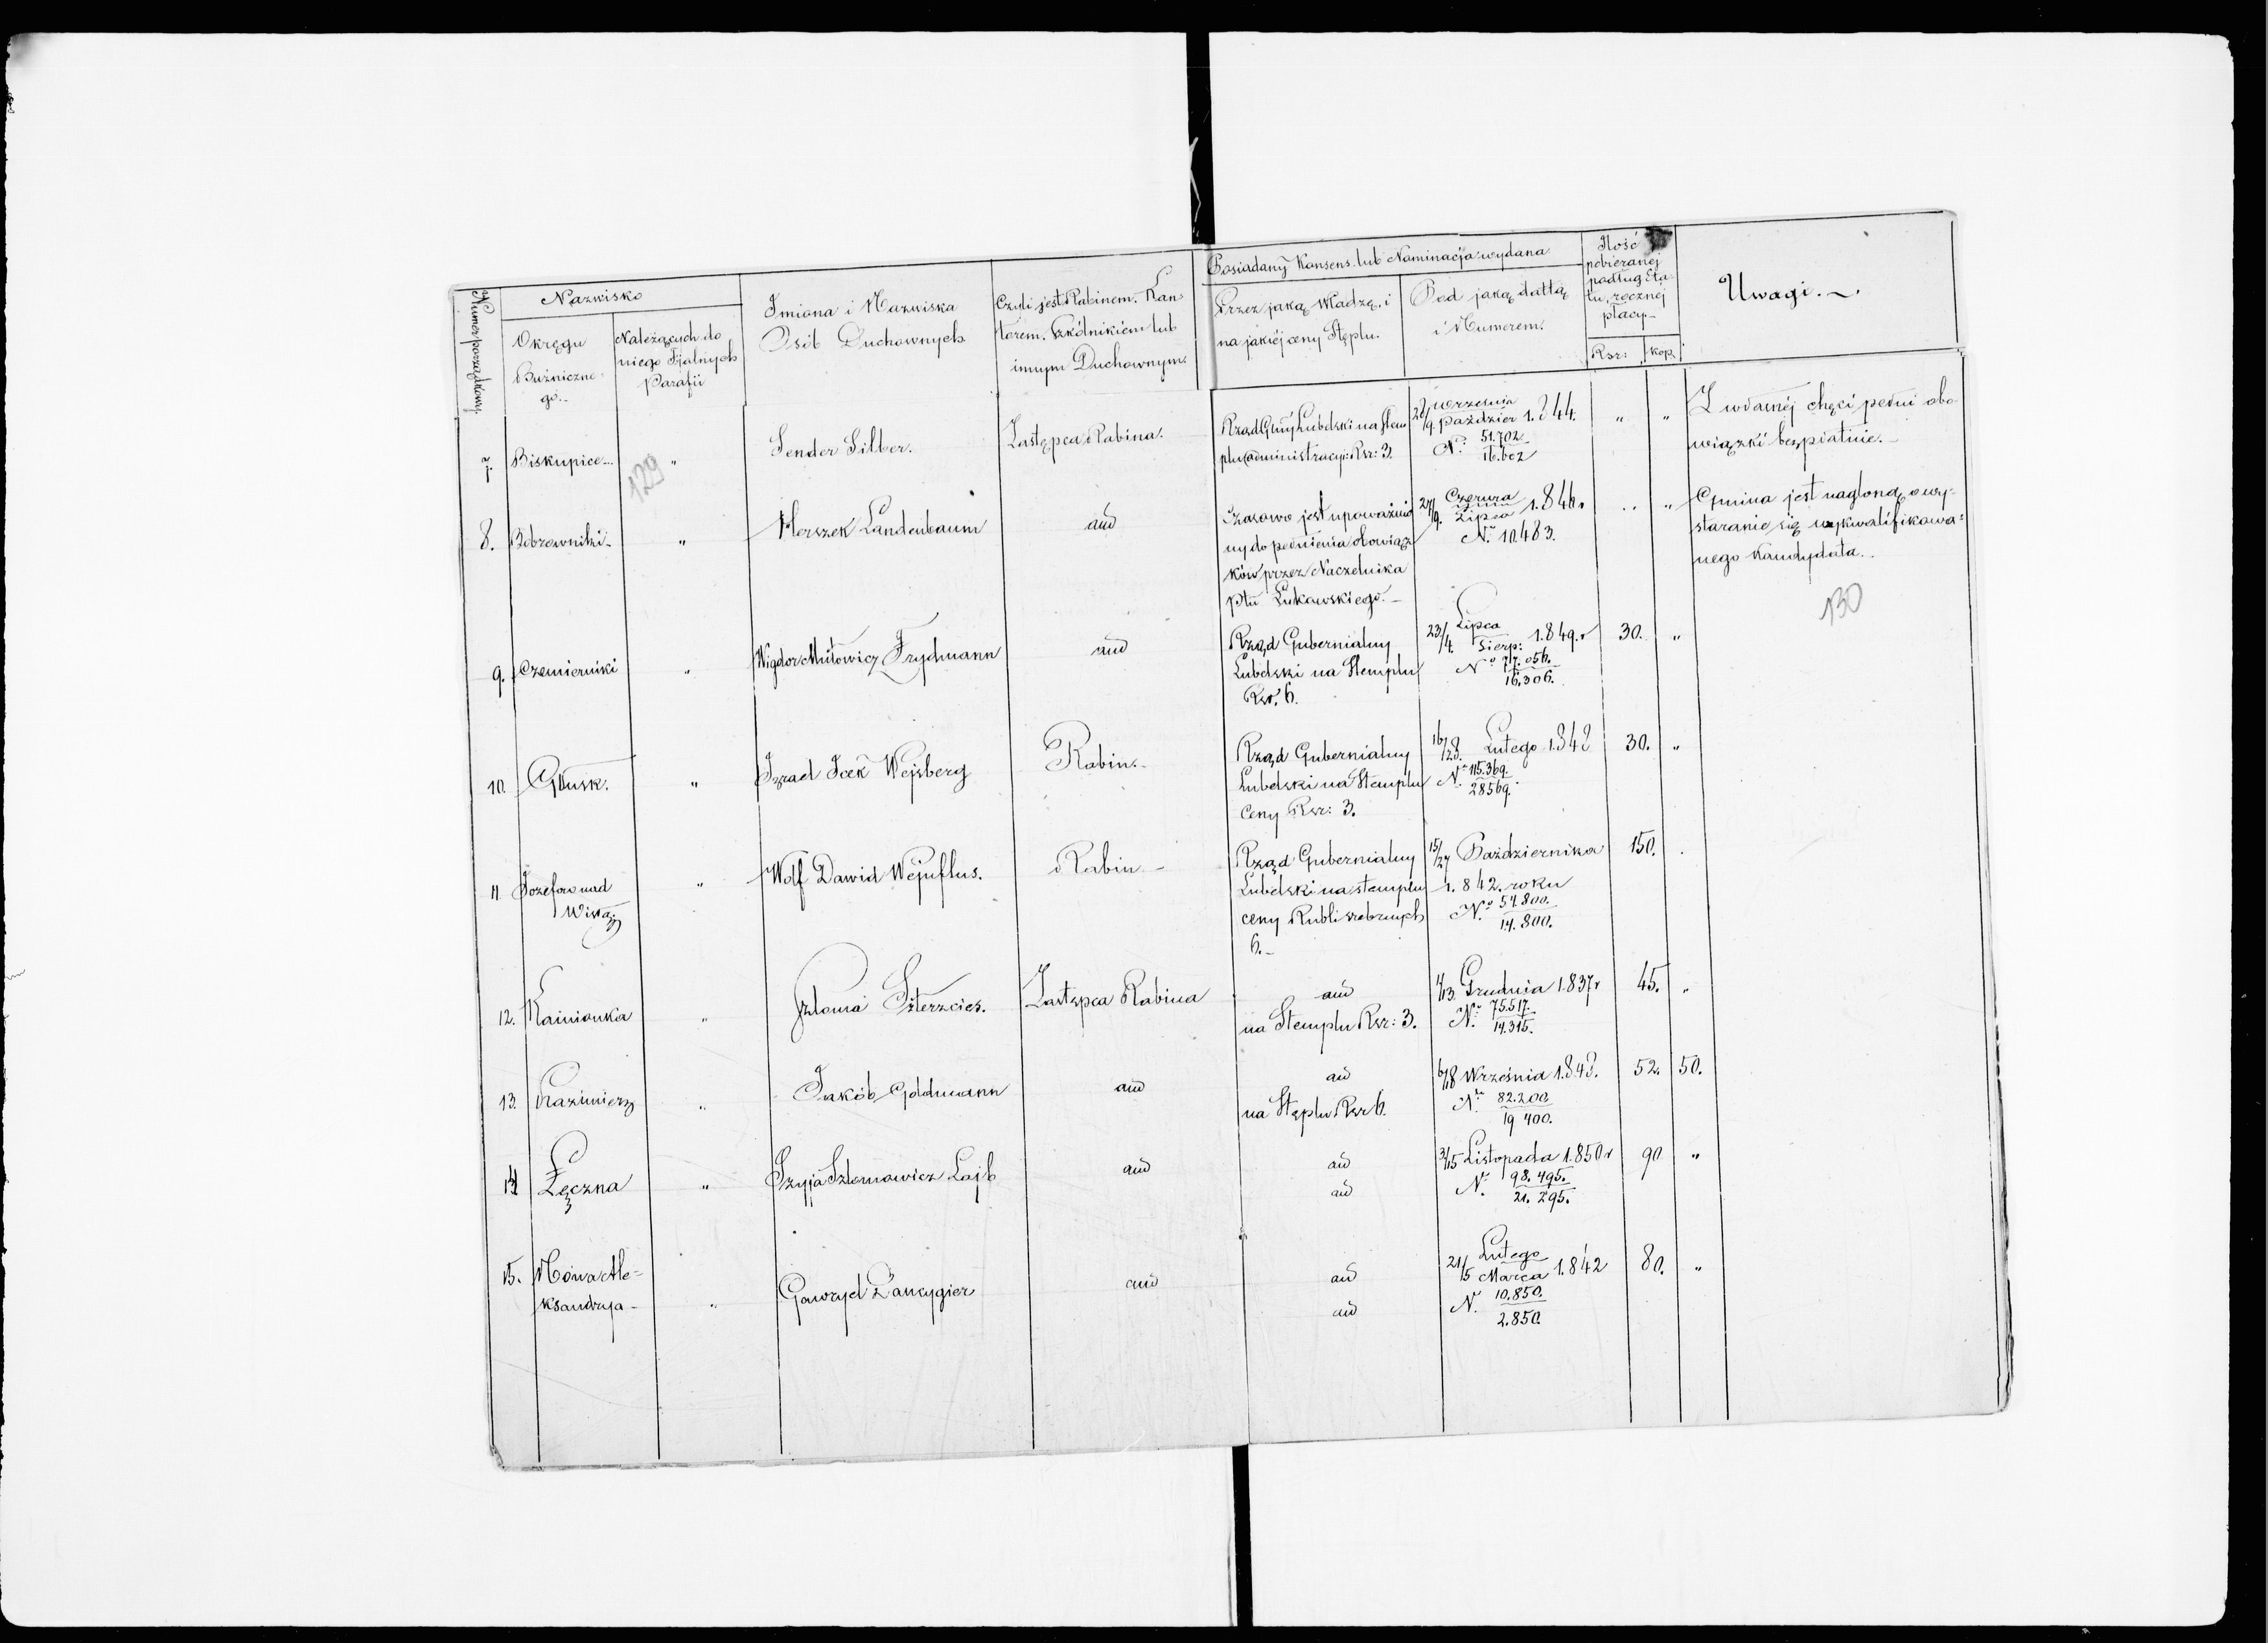 Numer porządkowy.
Nazwisko
Okręgu
Bużniczne-
go..
Należących do
niego Fjalnych
Parafii
Imiona i Nazwiska
Osób Duchownych
Czyli jest Rabinem. Kan-
torem. Szkólnikiem lub
innym Duchownym.
Posiadany Konsens. lub Nominacja wydana
Przez jaką Władzę, i
na jakiéj ceny Stęplu.
Pod jaką dattą
i Numerem.
Ilość
pobieranéj
podług Eta-
tu, rocznej
płacy.
Rsr: kop.
Uwagi. ~.
7. Biskupice " Sender Silber. Zastępca Rabina.
Rząd Gub[?] Lubelski na Stem
plu Rsr: 3.
września
Paździer 1.844.
No. 51.702
" "
Z własnéj chęci pełni obo-
wiązki bezpłatnie.
129
8. Bobrowniki " Herszek Landenbaum aud
Czasowo jest upoważnio
ny do pełnienia obowiąz
ków przez Naczelnika
Ptu Łukowskiego.
27/9. Czerwca
Lipca 1.846r
No. 10.483.
" "
Gmina jest naglona, o wy-
staranie się wykwalifikowa-
nego Kandydata.
130
9. Czemierniki " Wigdor Miłowicz Frydmann aud
Rząd Gubernialny
Lubelski na Stemplu
Rsr. 6.
23/4. Lipca
Sierp: 1.849.r
No 77.056.
16.306.
30. "
10. Głusk. " Izrael Icek Wejsberg Rabin.
Rząd Gubernialny
Lubelski na Stemplu
Ceny Rsr: 3.
16/28. Lutego 1.848
No. 115.369.
28569.
30. "
11. Józefow nad
Wisłą " Wolf Dawid Wejnflus. Rabin
Rząd Gubernialny
Lubelski na stemplu
ceny Rubli srebrnych
6.
15/27 Października
1.842. roku
No. 54.800.
14.800.
150.
12. Kamionka " Szloma Szterzcies. Zastępca Rabina
aud
na Stemplu Rsr: 3.
1/13. Grudnia 1.837r
No. 75.517.
14.315.
45. "
13. Kazimierz " Jakób Goldmann aud
aud
na Stęplu Rsr 6.
6/18 Września 1.848.
No 82.200
19 400.
52. 50.
14 Łęczna " Szyja Szlomowicz Lajb aud
aud
aud
3/15 Listopada 1.850r
N. 98.495.
21.295.
90 "
15. Nowa Ale-
ksandrya " Gawryel Zancygier aud
aud
aud
21/5 Lutego
Marca 1.842
N. 10.850.
2.850.
80. "